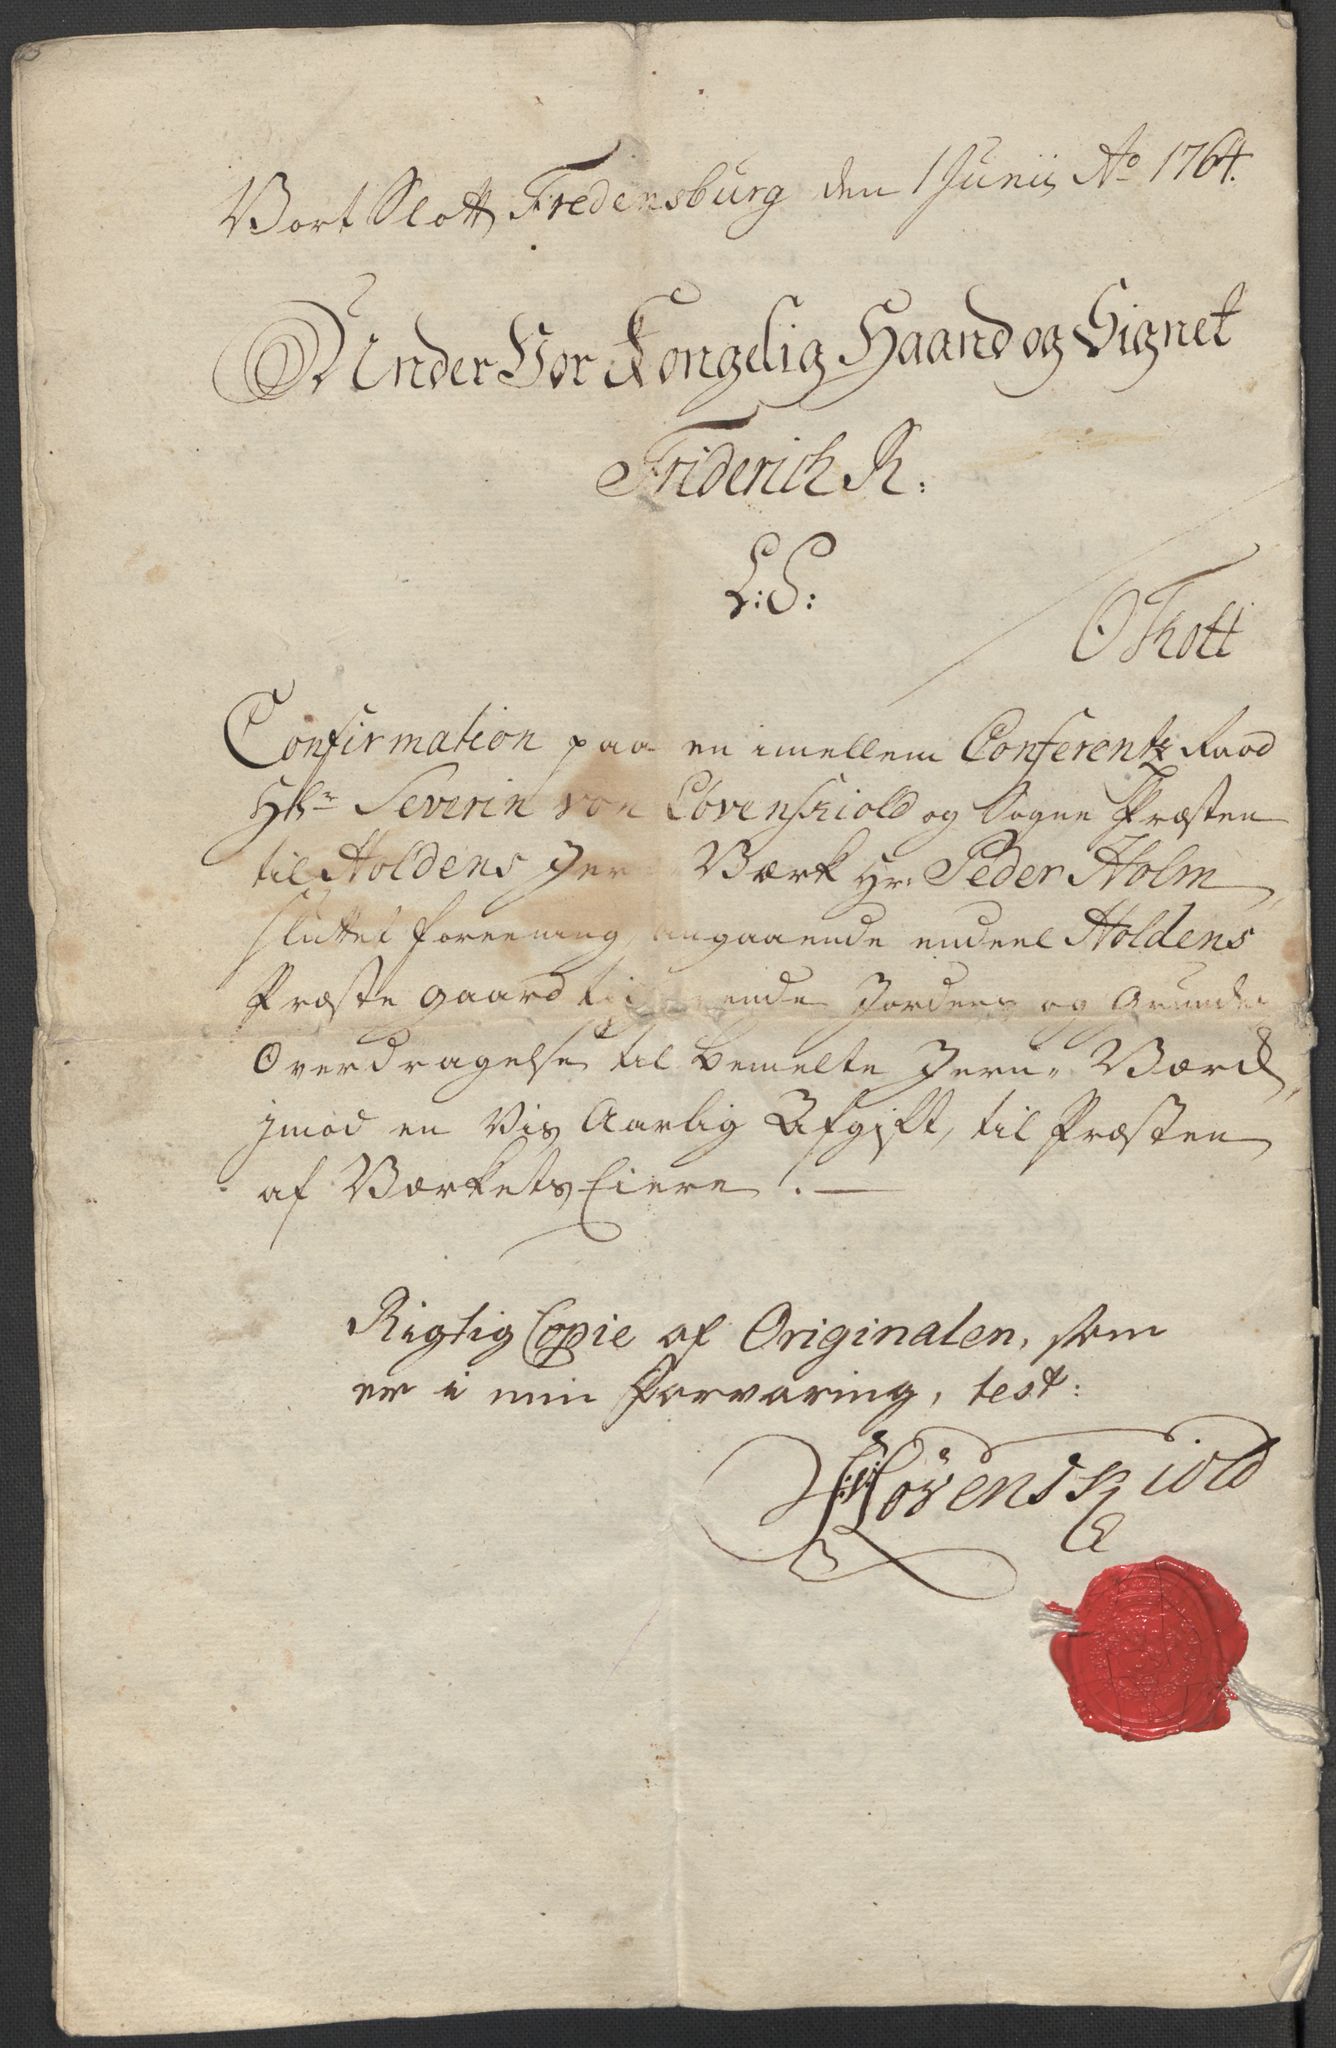 Vort Slott Fredensburg den 1 Junii Ao 1764.
Under Vor Kongelig Haand og Signet
Friderich R:
L:S:
O Thott
Confirmation paa en imellem Conferentz Raad
Hr Severin von Løvenskiold og Sogne Præsten
til Holdens Jern Værk Hr: Peder Holm
sluttet foreening, angaaende endeel Holdens
Præste gaard tilhørende Jorders og Grunders
Overdragelse til bemelte Jern- Værck,
jmod en Vis Aarlig Afgift, til Præsten
af Værkets Eiere. —
Rigtig Copie af Originalen, som
er i min Forvaring, test:
Løvenskiold